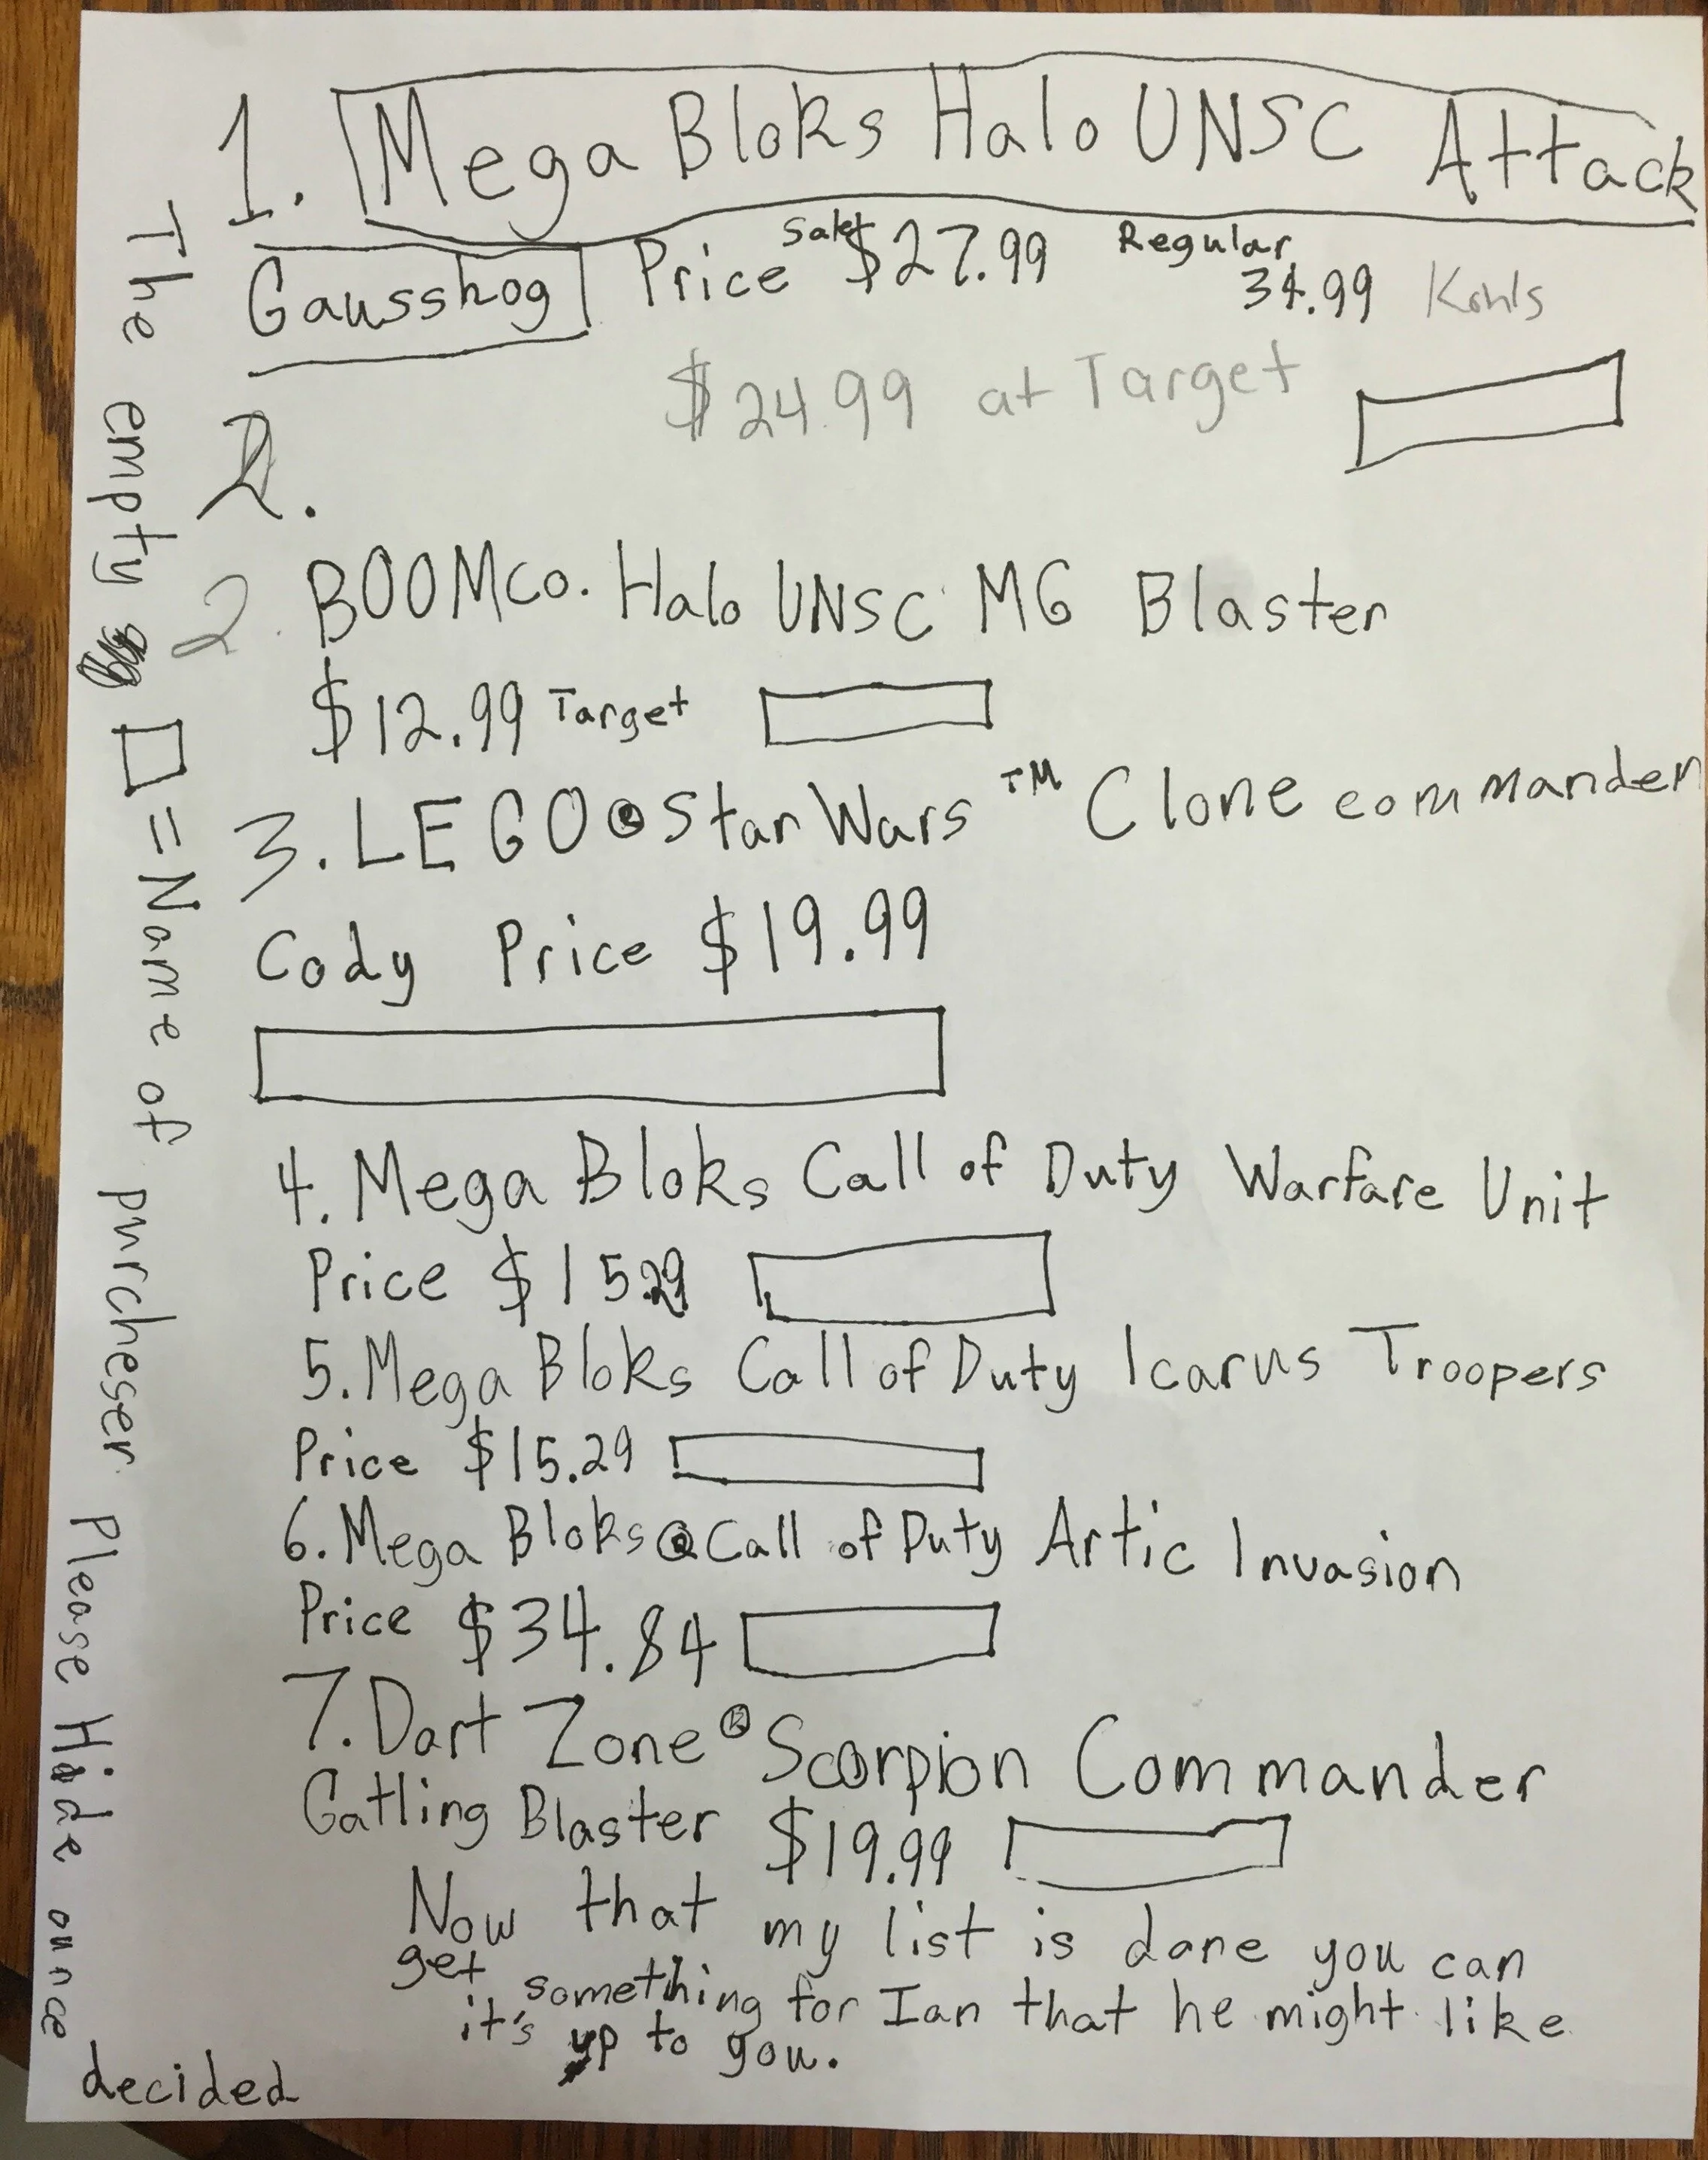 1. Mega Bloks Halo UNSC Attack
Gausshog Price Sale $27.99 Regular 34.99 Kohls
$24.99 at Target
2.
2. BOOMco. Halo UNSC M6 Blaster
$12.99 Target
3. LEGO® Star Wars™ Clone commander
Cody Price $19.99
4. Mega Bloks Call of Duty Warfare Unit
Price $15.29
5. Mega Bloks Call of Duty Icarus Troopers
Price $15.29
6. Mega Bloks® Call of Duty Artic Invasion
Price $34.84
7. Dart Zone® Scorpion Commander
Gatling Blaster $19.99
Now that my list is done you can
get something for Ian that he might like
it's up to you.
The empty □ = Name of purcheser Please Hide ounce
decided